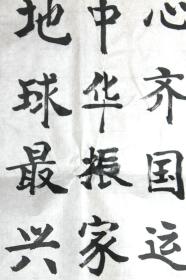 心齐国运
中华振家
地球最兴